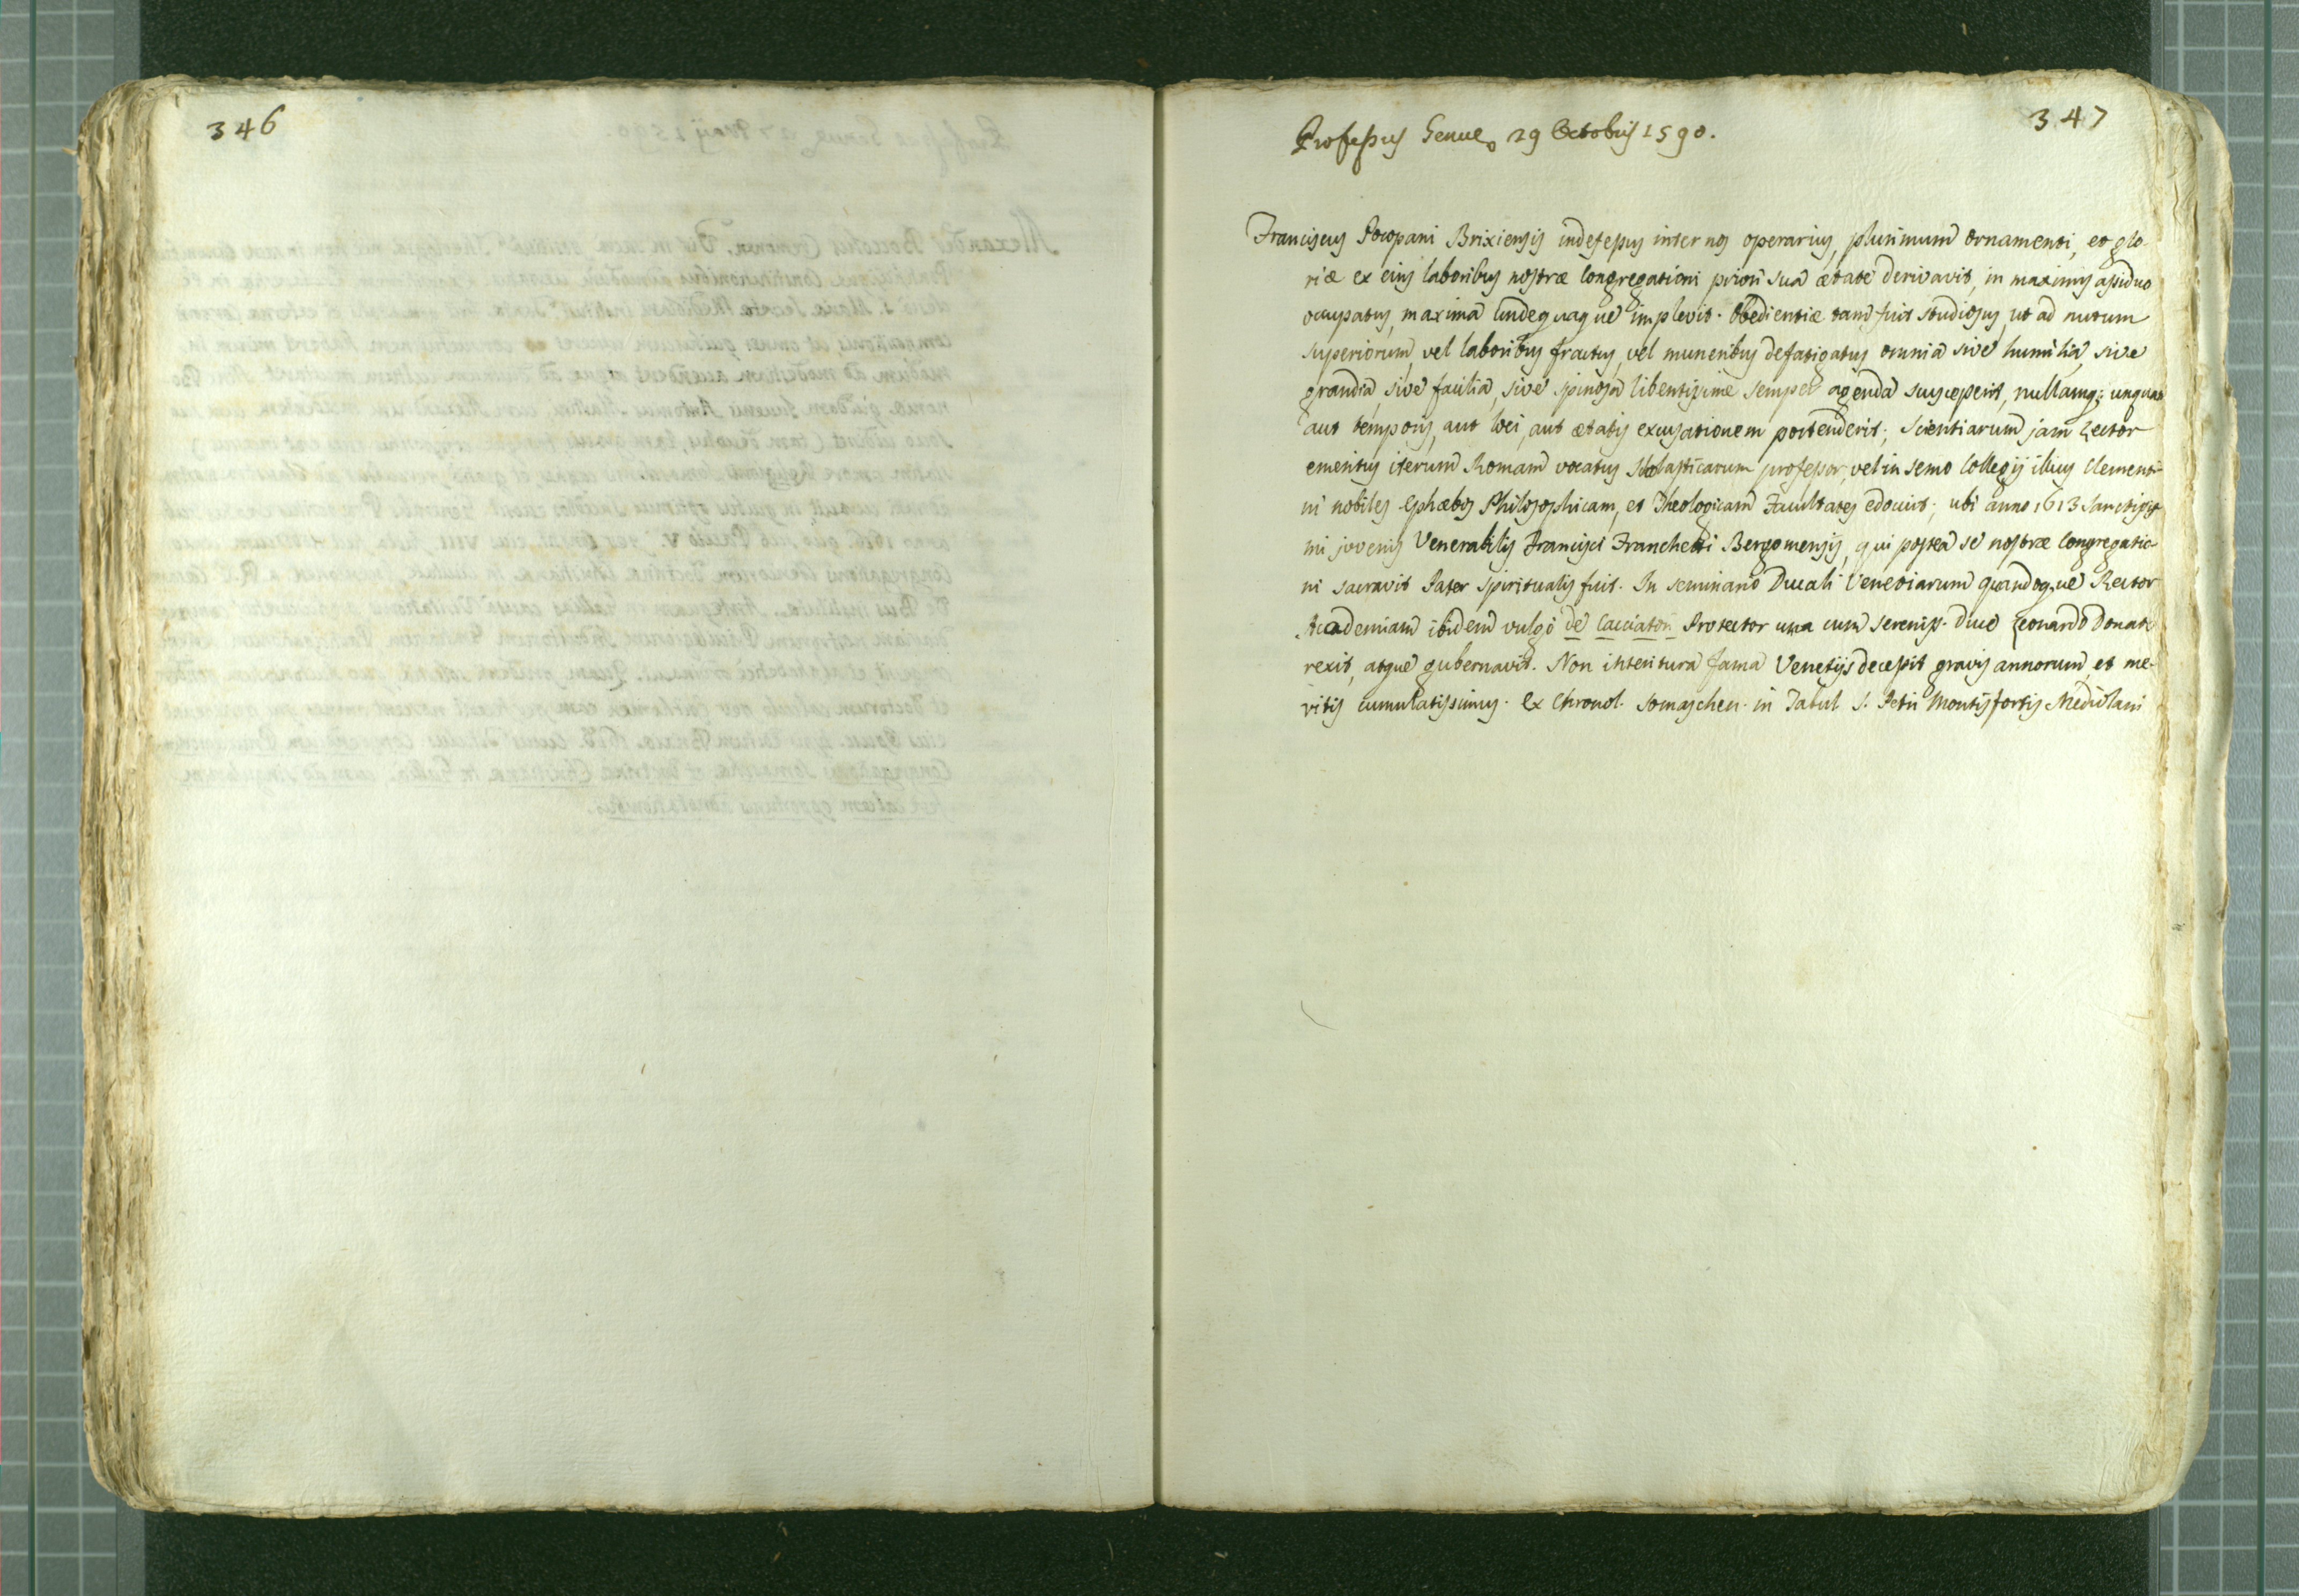 346
347
Professus Genuę 29 Octobris 1590.
Franciscus Pocopani Brixiensis indefessus inter nos operarius, plurimum ornamenti, et glo-
riæ ex eius laboribus nostræ Congregationi priori sua ætate derivavit, in maximis assiduo
occupatus, maxima undequaque implevit. Obedientiæ tam fuit studiosus, ut ad nutum
superiorum, vel laboribus fractus, vel muneribus defatigatus omnia sive humilia, sive
grandia, sive facilia, sive spinosa libentissime semper agenda susceperit, nullamq; unquam
aut temporis, aut loci, aut ætatis excusationem portenderit; Scientiarum jam Lector
emeritus iterum Romam vocatus Scholasticarum professor, vel in semo Collegij illius Clementi-
ni nobiles Ephæbos Philosophicam, et Theologicam Facultates edocuit; ubi anno 1613 Sanctissi-
mi juvenis Venerabilis Francisci Franchetti Bergomensis, qui postea se nostræ Congregatio-
ni sacravit Pater Spiritualis fuit. In seminario Ducali Venetiarum quandoque Rector
Academiam ibidem vulgo de Cacciatori Protector una cum Sereniss. Duce Leonardo Donato
rexit, atque gubernavit. Non interitura fama Venetijs decessit gravis annorum, et me-
ritis cumulatissimus. Ex Chronol. Somaschen. in Tabul S. Petri Montisfortis Mediolani